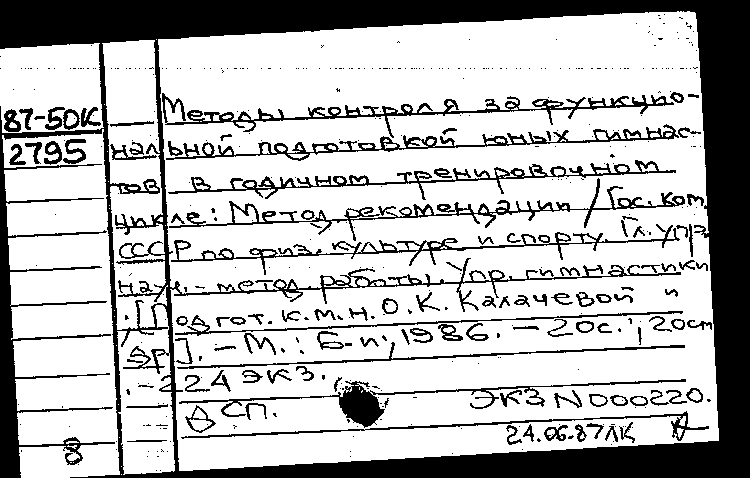 87-50К
2795
Методы контроля за функцио-
нальной подготовкой юных гимнас-
тов в годичном тренировочном
цикле: Метод. рекомендации / Гос. ком.
СССР по физ. культуре и спорту. Гл. упр.
науч.-метод. работы. Упр. гимнастики
; [Подгот. к.м.н. О.К. Калачевой и
др.]. - М.: Б.и., 1986. - 20с.; 20см
. - 224 экз.
ДСП.
ЭКЗ N000220.
24.06.87ЛК
8